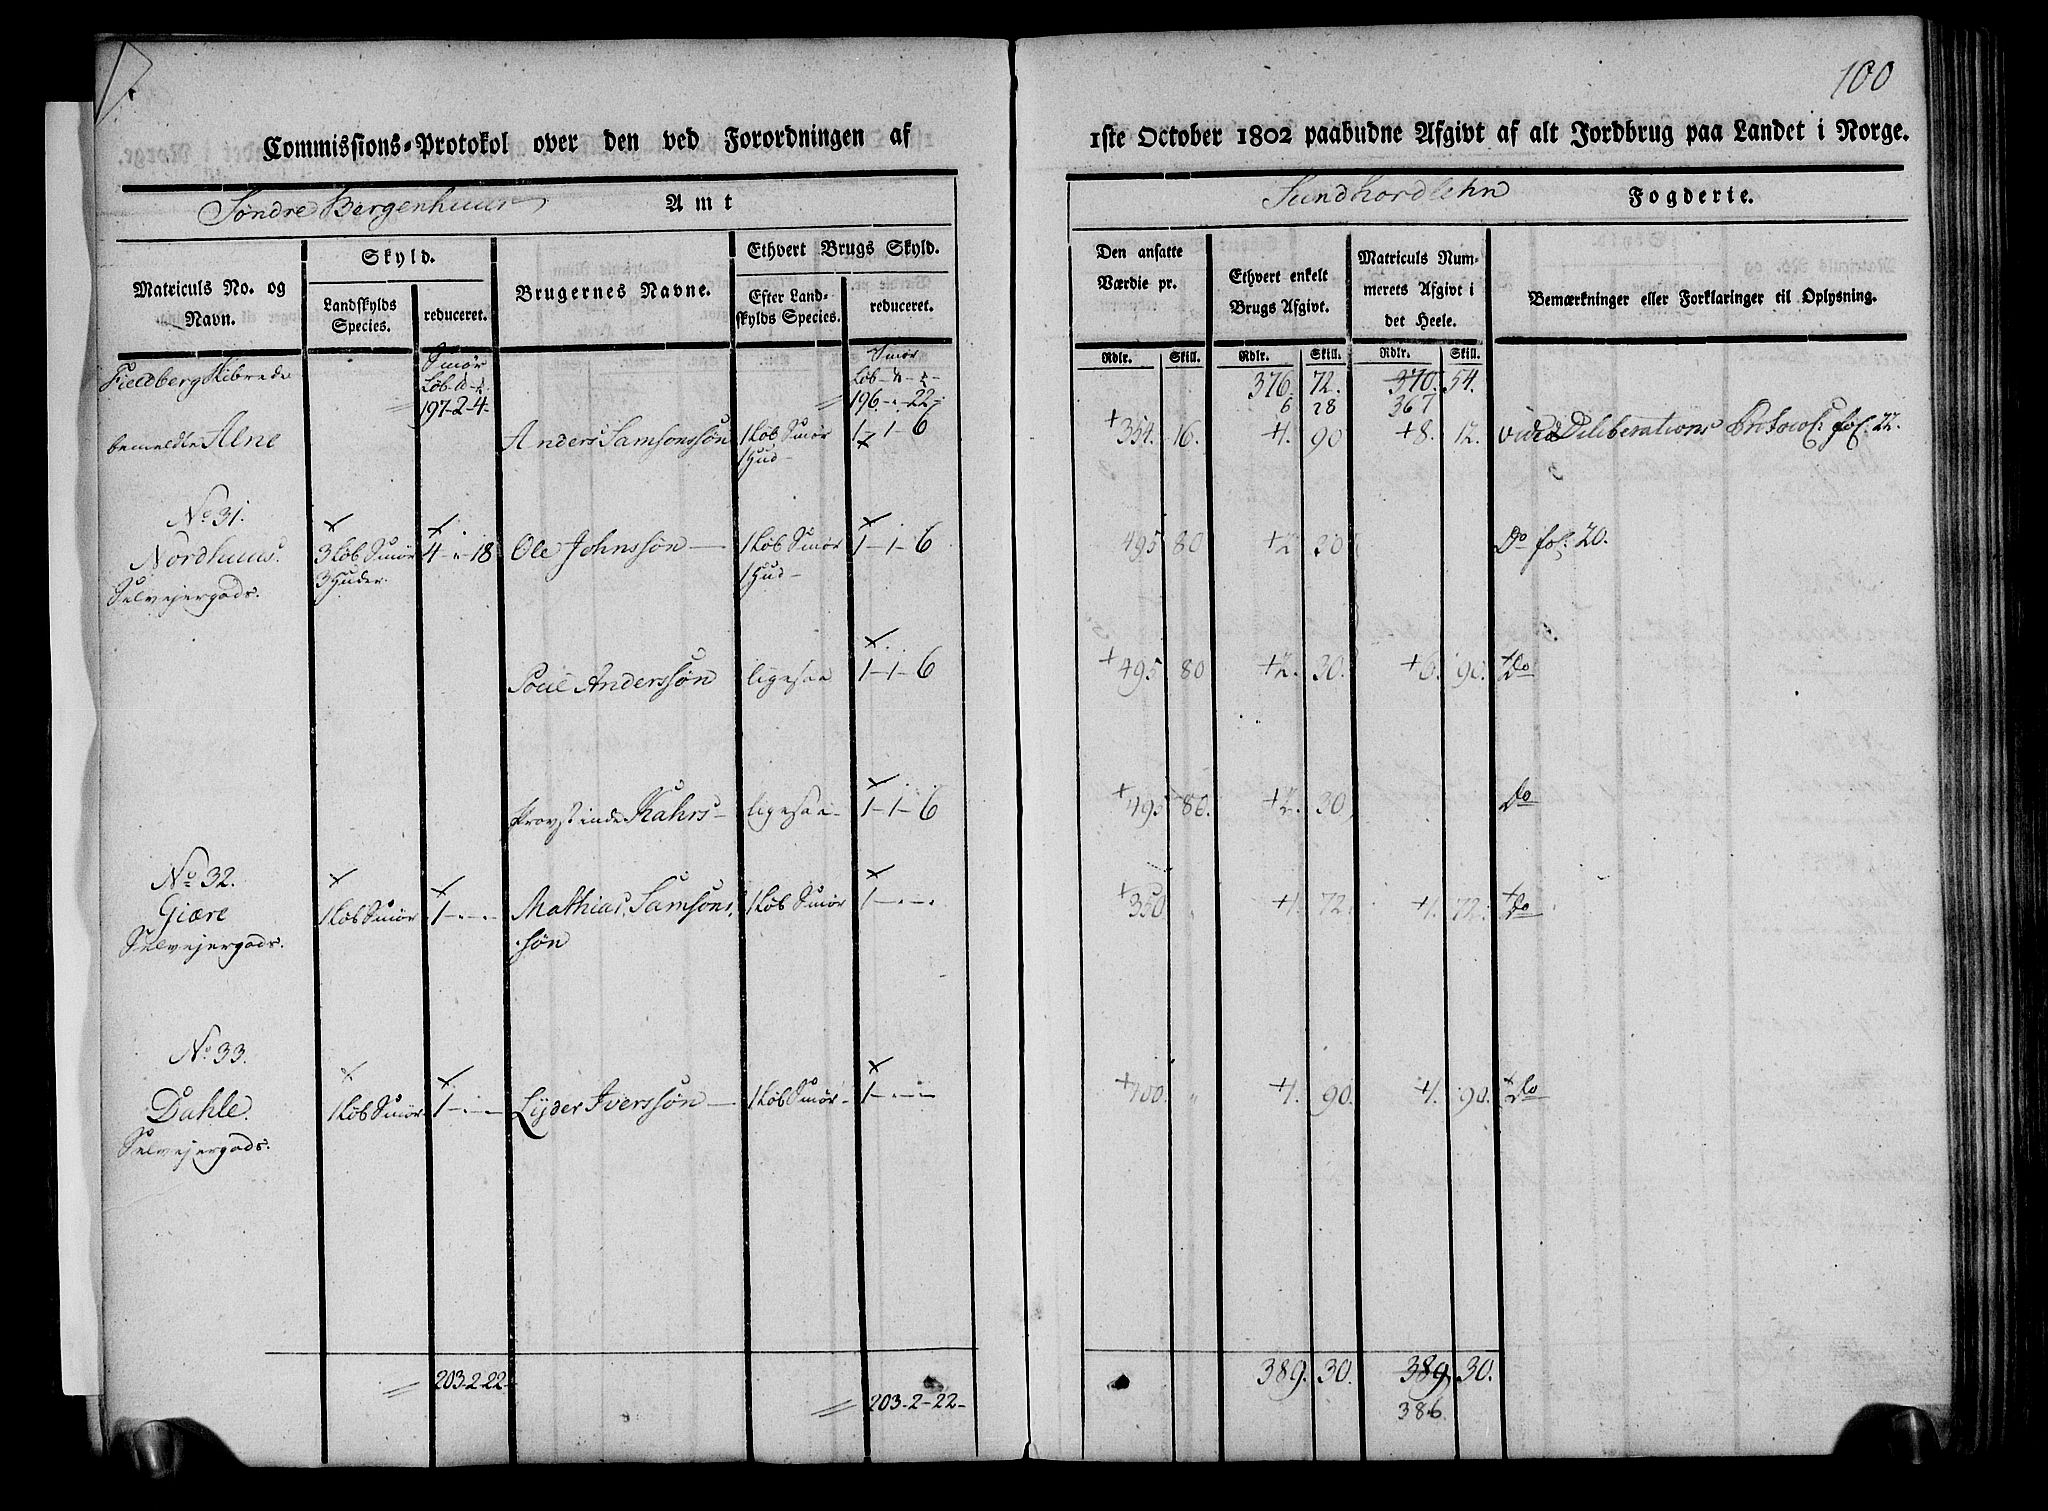 100
Commissions-Protokol over den ved Forordningen af 1ste October 1802 paabudne Afgivt af alt Jordbrug paa Landet i Norge.
Søndre Bergenhuus Amt
Sundhordlehn Fogderie.
Matriculs No. og Navn.
Skyld.
Landskylds Species.
reduceret.
Brugernes Navne.
Ethvert Brugs Skyld.
Efter Landskylds Species.
reduceret.
Den ansatte Værdie pr.
Ethvert enkelt Brugs Afgivt.
Matriculs Nummerets Afgivt i det Heele.
Bemærkninger eller Forklaringer til Oplysning.
Rdlr. Skill. Rdlr. Skill. Rdlr. Skill.
Fieldberg Skibrede
Smør
Løb
197-2-4-
Smør
Løb
196-"-22-
376. 72. 370. 54.
6 28 367
bemeldte Alne Anders Samsonssøn 1 Løb Smør 1-1-6 +354. 16. +4. 90 +8. 12. vide Deliberations Protocol fol. 22.
1 Hud-
No 31.
Nordhuus. 3 Løb Smør 4-"-18 Ole Johnssøn- 1 Løb Smør 1-1-6 495 80 +2 30 Do fol. 20.
Selvejergods. 3 Huder. 1 Hud-
Poul Anderssøn ligesaa 1-1-6 +495 80 +2. 30. +6. 90. +Do
Provstinde Kahrs- ligesaa- 1-1-6 +495 80. +2. 30 Do
No 32.
Giære 1 Løb Smør 1-"-" Mathias Samsons 1 Løb Smør 1-"-" +350 " +1. 72. +1. 72. +Do
Selvejergods. søn
No 33.
Dahle. 1 Løb Smør 1-"-" Lyder Iverssøn- 1 Løb Smør- 1-"-" +400. " +1. 90. +1. 90. +Do
Selvejergods.
203-2-22- 389. 30. 389. 30.
203-2-22- 386